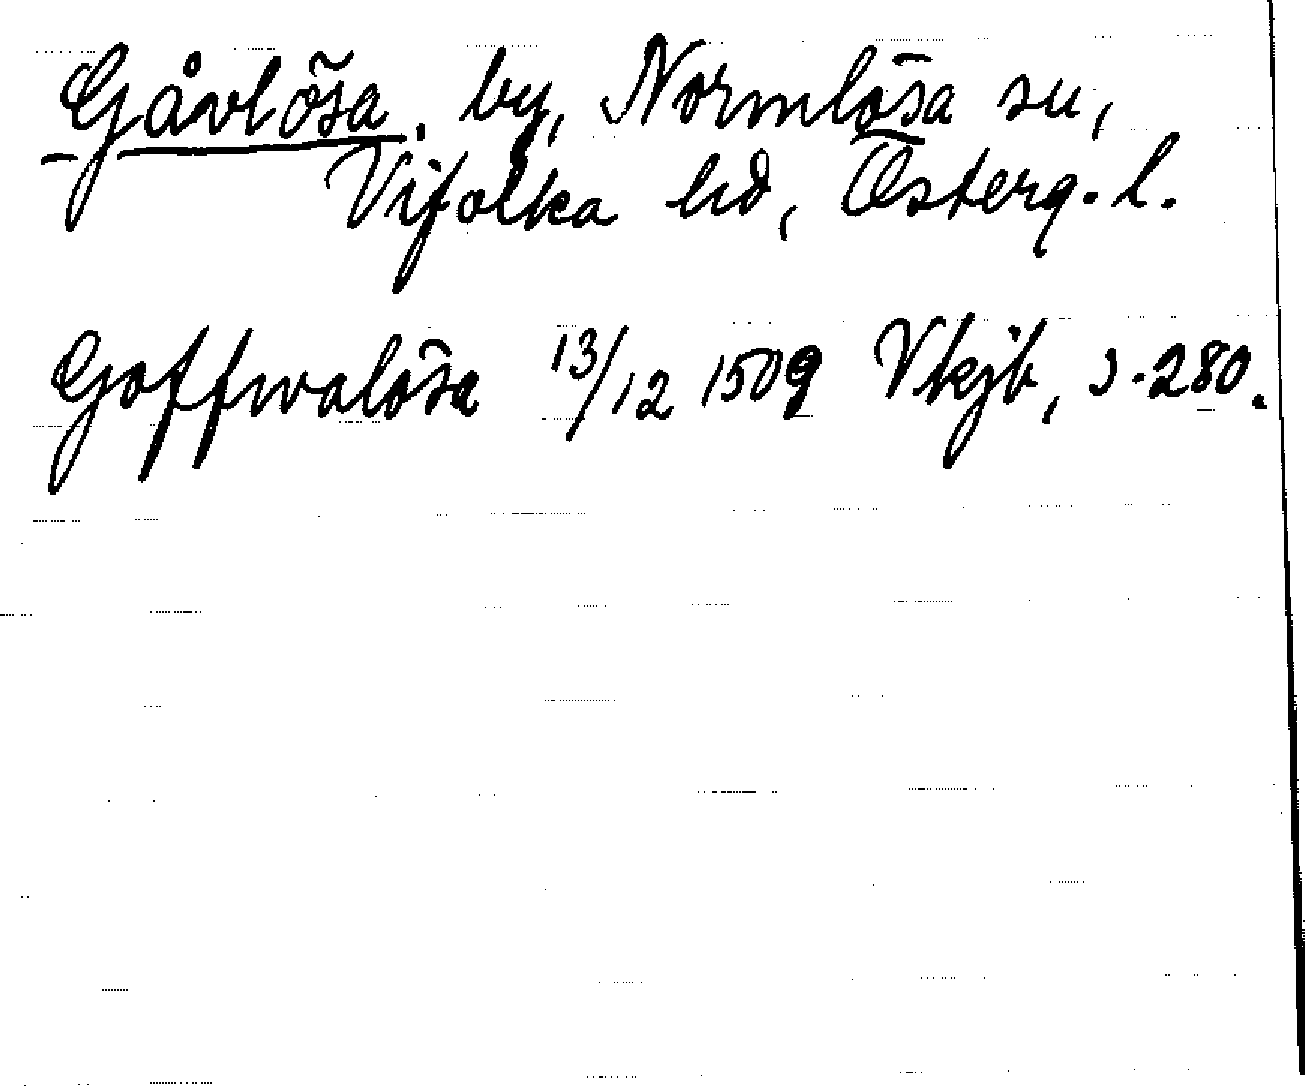 Gåvlösa. by, Normlösa sn,
Vifolka hd, Österg. l.
Goffwalösa 13/12 1509 Vkjb, s. 280.